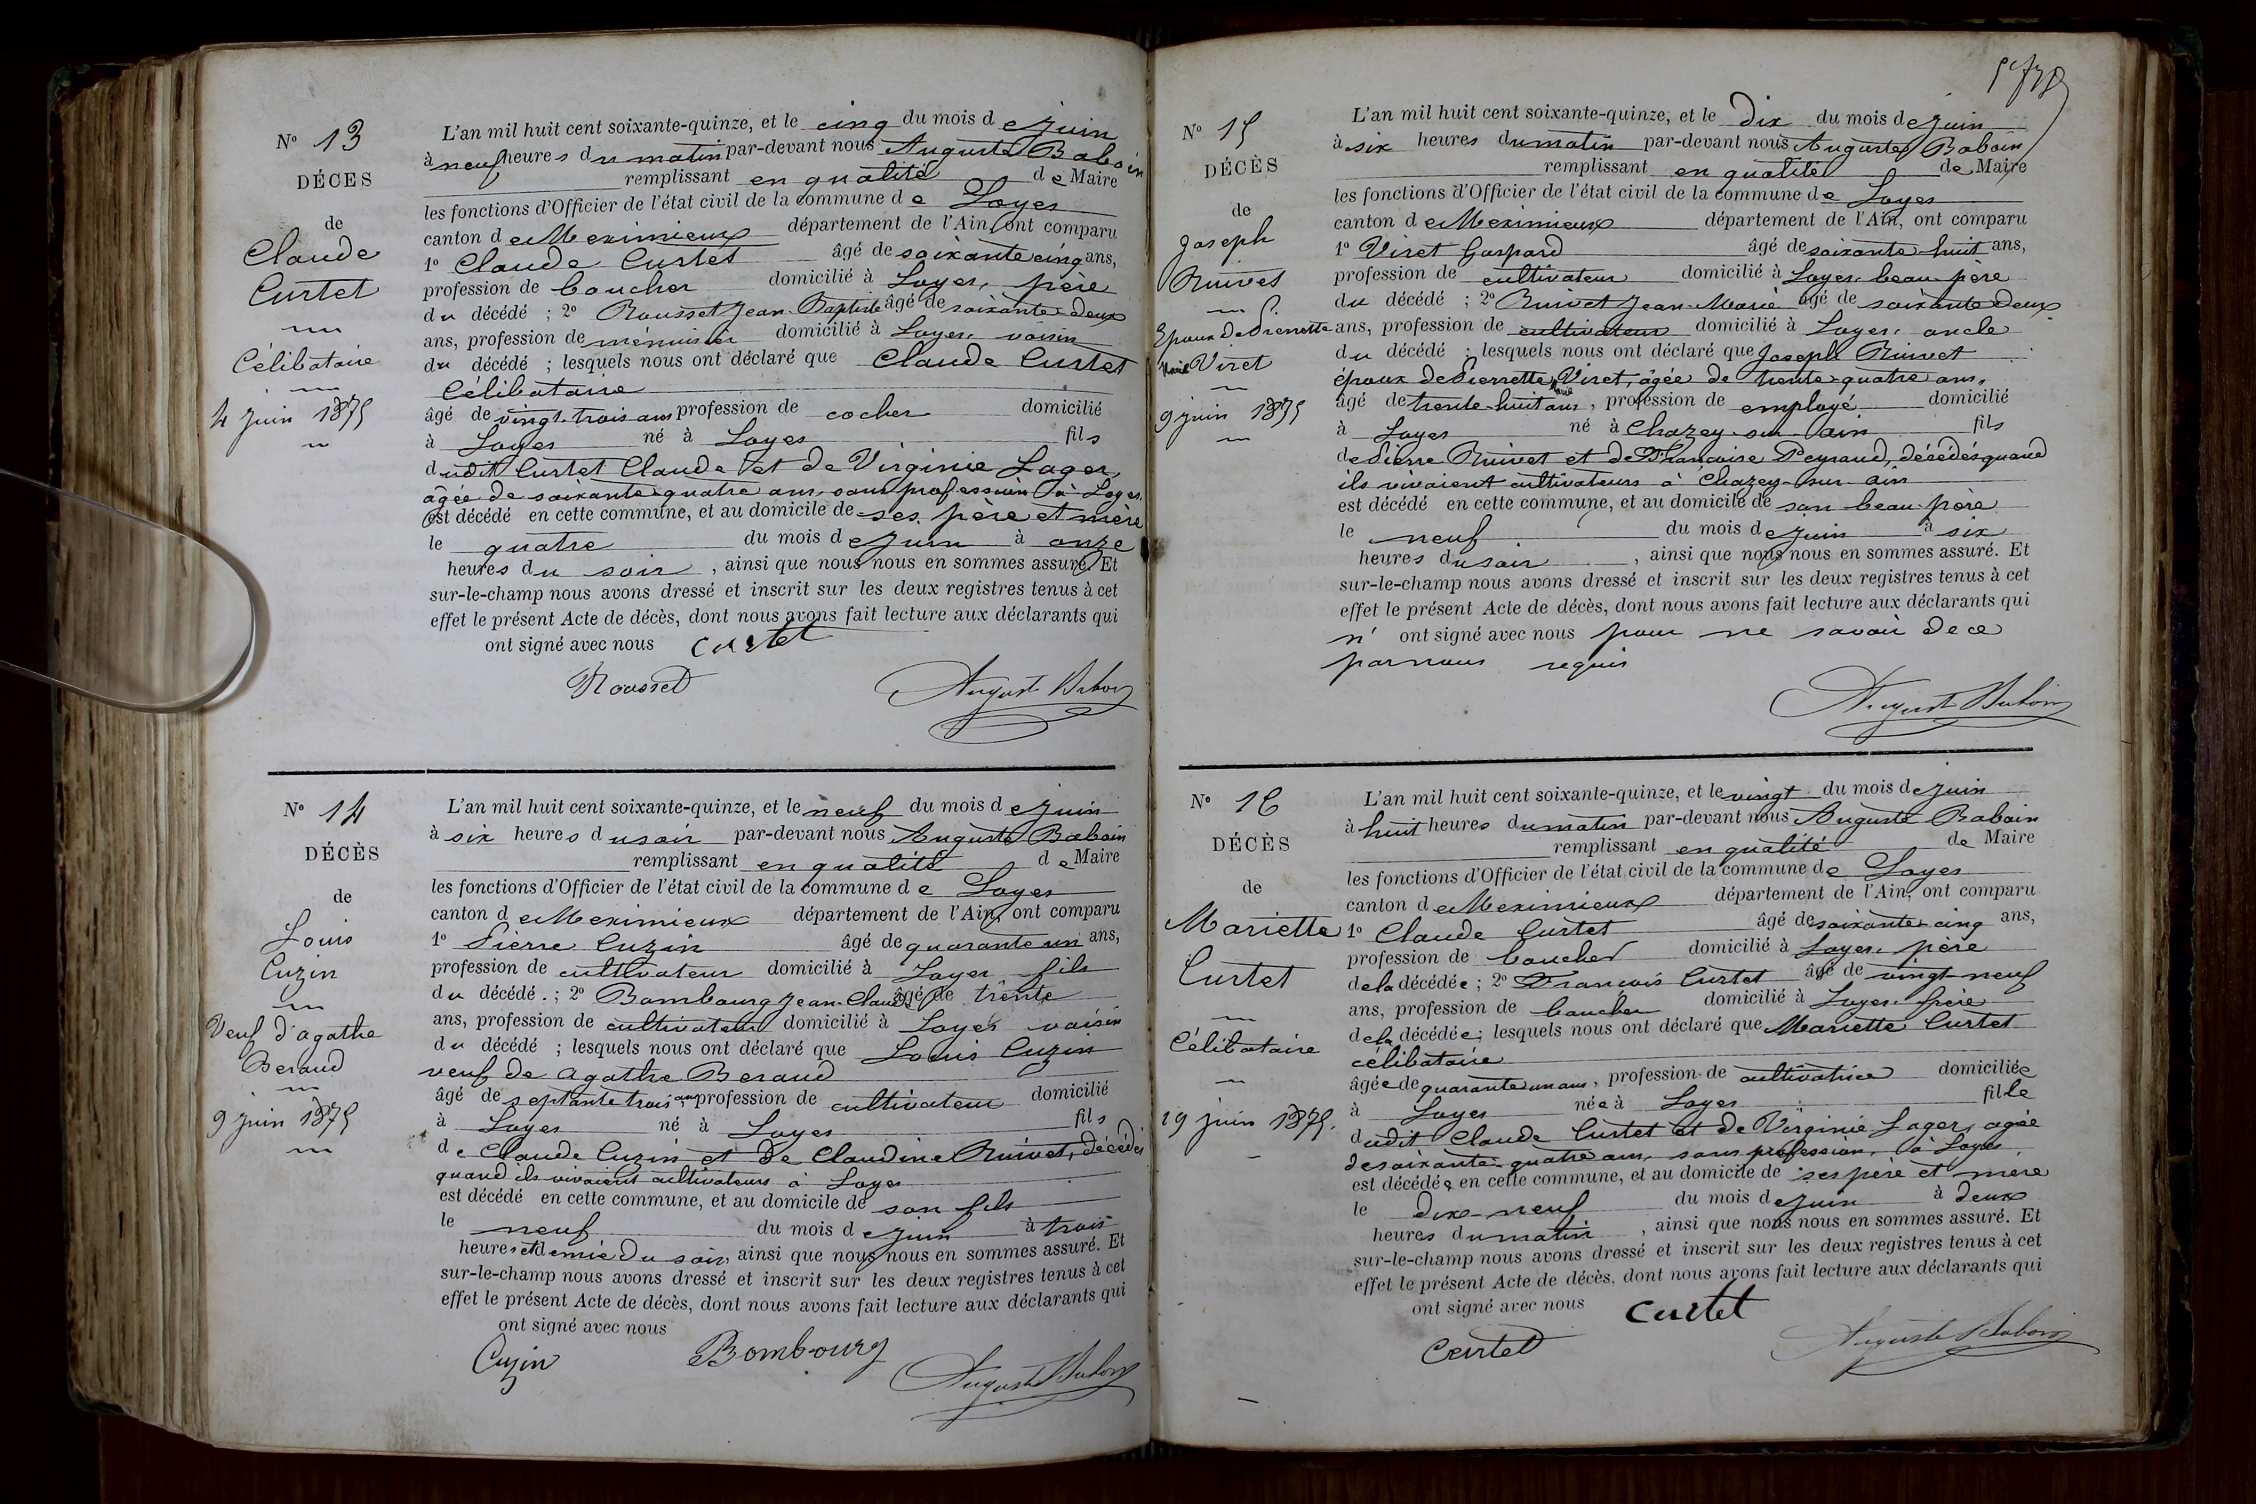 Nº 13
DÉCES
de
Claude
Curtet
Célibataire
4 juin 1875
L'an mil huit cent soixante-quinze, et le cinq du mois de juin
à neuf heures du matin par-devant nous Auguste Baboin
remplissant en qualité de Maire
les fonctions d'Officier de l'état civil de la commune de Loyes
canton de Meximieux département de l'Ain, ont comparu
1º Claude Curtet âgé de soixante cinq ans,
profession de boucher domicilié à Loyes, père
du décédé ; 2º Rousset Jean-Baptiste âgé de soixante-deux
ans, profession de ménuisier domicilié à Loyes, voisin
du décédé ; lesquels nous ont déclaré que Claude Curtet
Célibataire
âgé de vingt-trois ans profession de cocher domicilié
à Loyes né à Loyes fils
dudit Curtet Claude et de Virginie Lager,
âgée de soixante-quatre ans, sans profession à Loyes.
est décédé en cette commune, et au domicile de ses père et mère
le quatre du mois de juin à onze
heures du soir, ainsi que nous nous en sommes assuré. Et
sur-le-champ nous avons dressé et inscrit sur les deux registres tenus à cet
effet le présent Acte de décès, dont nous avons fait lecture aux déclarants qui
ont signé avec nous Curtet
Rousset Auguste Baboin
Nº 14
DÉCÈS
de
Louis
Cuzin
Veuf d'agathe
Beraud
9 juin 1875
L'an mil huit cent soixante-quinze, et le neuf du mois de juin
à six heures du soir par-devant nous Auguste Baboin
remplissant en qualité de Maire
les fonctions d'Officier de l'état civil de la commune de Loyes
canton de Meximieux département de l'Ain, ont comparu
1º Pierre Cuzin âgé de quarante un ans,
profession de cultivateur domicilié à Loyes fils
du décédé. ; 2º Bombourg Jean-Claude âgé de trente
ans, profession de cultivateur domicilié à Loyes voisin
du décédé ; lesquels nous ont déclaré que Louis Cuzin
veuf de agathe Beraud
âgé de septante trois ans profession de cultivateur domicilié
à Loyes né à Loyes fils
de Claude Cuzin et de Claudine Ruivet, décédés
quand ils vivaient cultivateurs à Loyes
est décédé en cette commune, et au domicile de son fils
le neuf du mois de juin à trois
heures et demie du soir, ainsi que nous nous en sommes assuré. Et
sur-le-champ nous avons dressé et inscrit sur les deux registres tenus à cet
effet le présent Acte de décès, dont nous avons fait lecture aux déclarants qui
ont signé avec nous
Cuzin Bombourg Auguste Baboin
Nº 15
DÉCÈS
de
Joseph
Ruivet
Epoux de Pierrette
Marie Viret
9 juin 1875
L'an mil huit cent soixante-quinze, et le Dix du mois de juin
à six heures du matin par-devant nous Auguste Baboin
remplissant en qualité de Maire
les fonctions d'Officier de l'état civil de la commune de Loyes
canton de Meximieux département de l'Ain, ont comparu
1º Viret Gaspard âgé de soixante huit ans,
profession de cultivateur domicilié à Loyes, beau-père
du décédé ; 2º Ruivet Jean-Marie âgé de soixante deux
ans, profession de cultivateur domicilié à Loyes, oncle
du décédé ; lesquels nous ont déclaré que Joseph Ruivet
époux de Pierrette Marie Viret, âgée de trente-quatre ans,
âgé de trente-huit ans, profession de employé domicilié
à Loyes né à Chazey-sur-ain fils
de Pierre Ruivet et de Françoise Peyraud, décédés quand
ils vivaient cultivateurs à Chazey-sur-ain
est décédé en cette commune, et au domicile de son beau-père
le neuf du mois de juin à six
heures du soir, ainsi que nous nous en sommes assuré. Et
sur-le-champ nous avons dressé et inscrit sur les deux registres tenus à cet
effet le présent Acte de décès, dont nous avons fait lecture aux déclarants qui
n' ont signé avec nous pour ne savoir de ce
par nous requis
Auguste Baboin
Nº 16
DÉCÈS
de
Mariette
Curtet
Célibataire
19 juin 1875.
L'an mil huit cent soixante-quinze, et le vingt du mois de juin
à huit heures du matin par-devant nous Auguste Baboin
remplissant en qualité de Maire
les fonctions d'Officier de l'état civil de la commune de Loyes
canton de Meximieux département de l'Ain, ont comparu
1º Claude Curtet âgé de soixante-cinq ans,
profession de boucher domicilié à Loyes, père
de la décédée ; 2º François Curtet âgé de vingt-neuf
ans, profession de boucher domicilié à Loyes, frère
de la décédée ; lesquels nous ont déclaré que Mariette Curtet
célibataire
âgée de quarante un ans, profession de cultivatrice domiciliée
à Loyes née à Loyes fille
dudit Claude Curtet et de Virginie Lager, agée
de soixante-quatre ans, sans profession, à Loyes.
est décédée en cette commune, et au domicile de ses père et mère
le dix-neuf du mois de juin à deux
heures du matin, ainsi que nous nous en sommes assuré. Et
sur-le-champ nous avons dressé et inscrit sur les deux registres tenus à cet
effet le présent Acte de décès, dont nous avons fait lecture aux déclarants qui
ont signé avec nous Curtet
Curtet Auguste Baboin